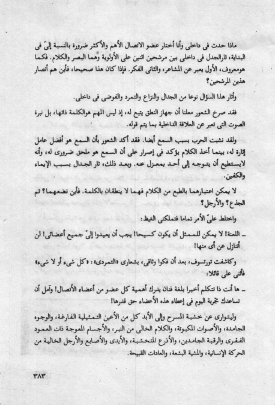 ماذا حدث فى داخلى وأنا أختار عضو الاتصال الأهم والأكثر ضرورة بالنسبة إلىّ فى
البداية، ثار الجدل فى داخلى بين مرشحين اثنين على الأولوية وهما البصر والكلام. فكما
هو معروف، الأول يعبر عن المشاعر، والثانى الفكر. فإذا كان هذا صحيحا، فأين هم أنصار
هذين المرشحين؟
وأثار هذا السؤال نوعا من الجدل والنزاع والتمرد والفوضى فى داخلى.
فقد صرع الشعور معلنا أن جهاز النطق يتبع له، إذ ليس المهم هو الكلمة ذاتها، بل نبرة
الصوت التى تعبر عن العلاقة الداخلية بما يتم قوله.
ولقد نشبت الحرب بسبب السمع أيضا. فقد أكد الشعور بأن السمع هو أفضل عامل
إثارة له، بينما أخذ الكلام يؤكد فى إصرار على أن السمع هو ملحق ضرورى له، وأنه
لا يستطيع أن يتوجه إلى أحد بمعزل عنه. وبعد ذلك، ثار الجدال بسبب الإيماء
والكفين.
لا يمكن اعتبارهما بالطبع من الكلام فهما لا ينطقان بالكلمة. فأين نضمهما؟ ثم
الجذع؟ والأرجل؟
واختلط علىّ الأمر تماما فتملكنى الغيظ.
ــ اللعنة! لا يمكن للممثل أن يكون كسيحا! يجب أن يعيدوا إلىّ جميع أعضائى! لن
أتنازل عن أى منها!
وكاشفت تورتسوف، بعد أن فكوا وثاقى، بشعارى «التمردى»: «كل شىء أو لا شىء»
فأثنى على قائلا:
ــ ها أنت ذا تتكلم أخيرا بلغة فنان يدرك أهمية كل عضو من أعضاء الاتصال! وآمل أن
تساعدك تجربة اليوم فى إعطاء هذه الأعضاء حق قدرها!
وليتوارى عن خشبة المسرح وإلى الأبد كل من الأعين التمثيلية الفارغة، والوجوه
الجامدة، والأصوات المكبوتة، والكلام الخالى من النبر، والأجسام المعوجة ذات العمود
الفقرى والرقبة الجامدين، والأذرع المتخشبة، والأيدى والأصابع والأرجل الخالية من
الحركة الإنسانية، والمشية البشعة، والعادات القبيحة.
٣٨٣